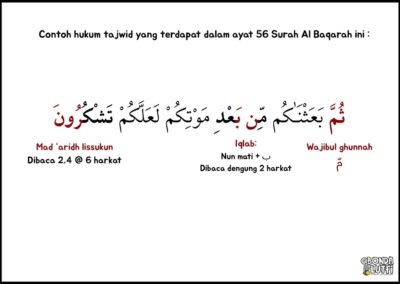 Contoh hukum tajwid yang terdapat dalam ayat 56 Surah Al Baqarah ini :
ثُمَّ بَعَثْنَاكُم مِّن بَعْدِ مَوْتِكُمْ لَعَلَّكُمْ تَشْكُرُونَ
Wajibul ghunnah
مّ
Iqlab:
Nun mati + ب
Dibaca dengung 2 harkat
Mad 'aridh lissukun
Dibaca 2,4 @ 6 harkat